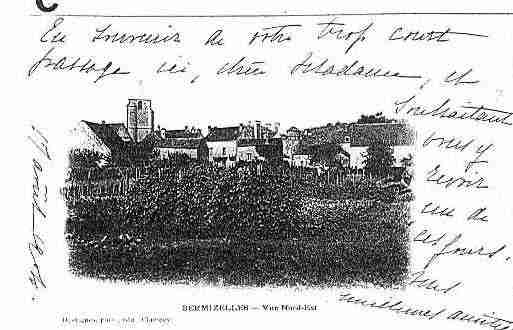 En souvenir de votre trop court
passage ici, chère Madame, et
souhaitant
vous y
revoir
un de
ces jours.
Mes
meilleures amitiés
17 août
SERMIZELLES — Vue Nord-Est
phot. édit. Clamecy